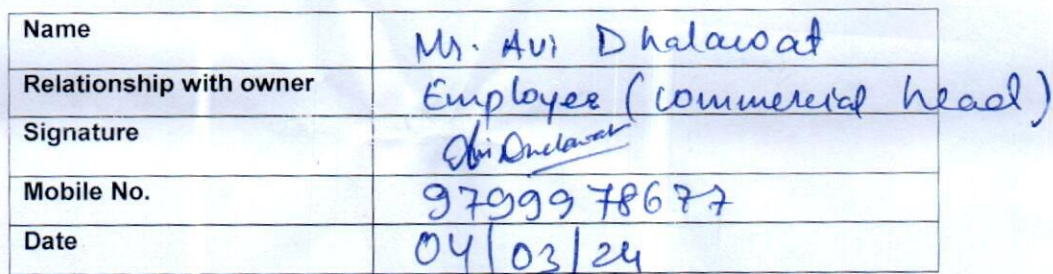 Name Mr. Avi Dhalawat
Relationship with owner Employee (commercial head)
Signature Avi Dhalawat
Mobile No. 9799978677
Date 04/03/24